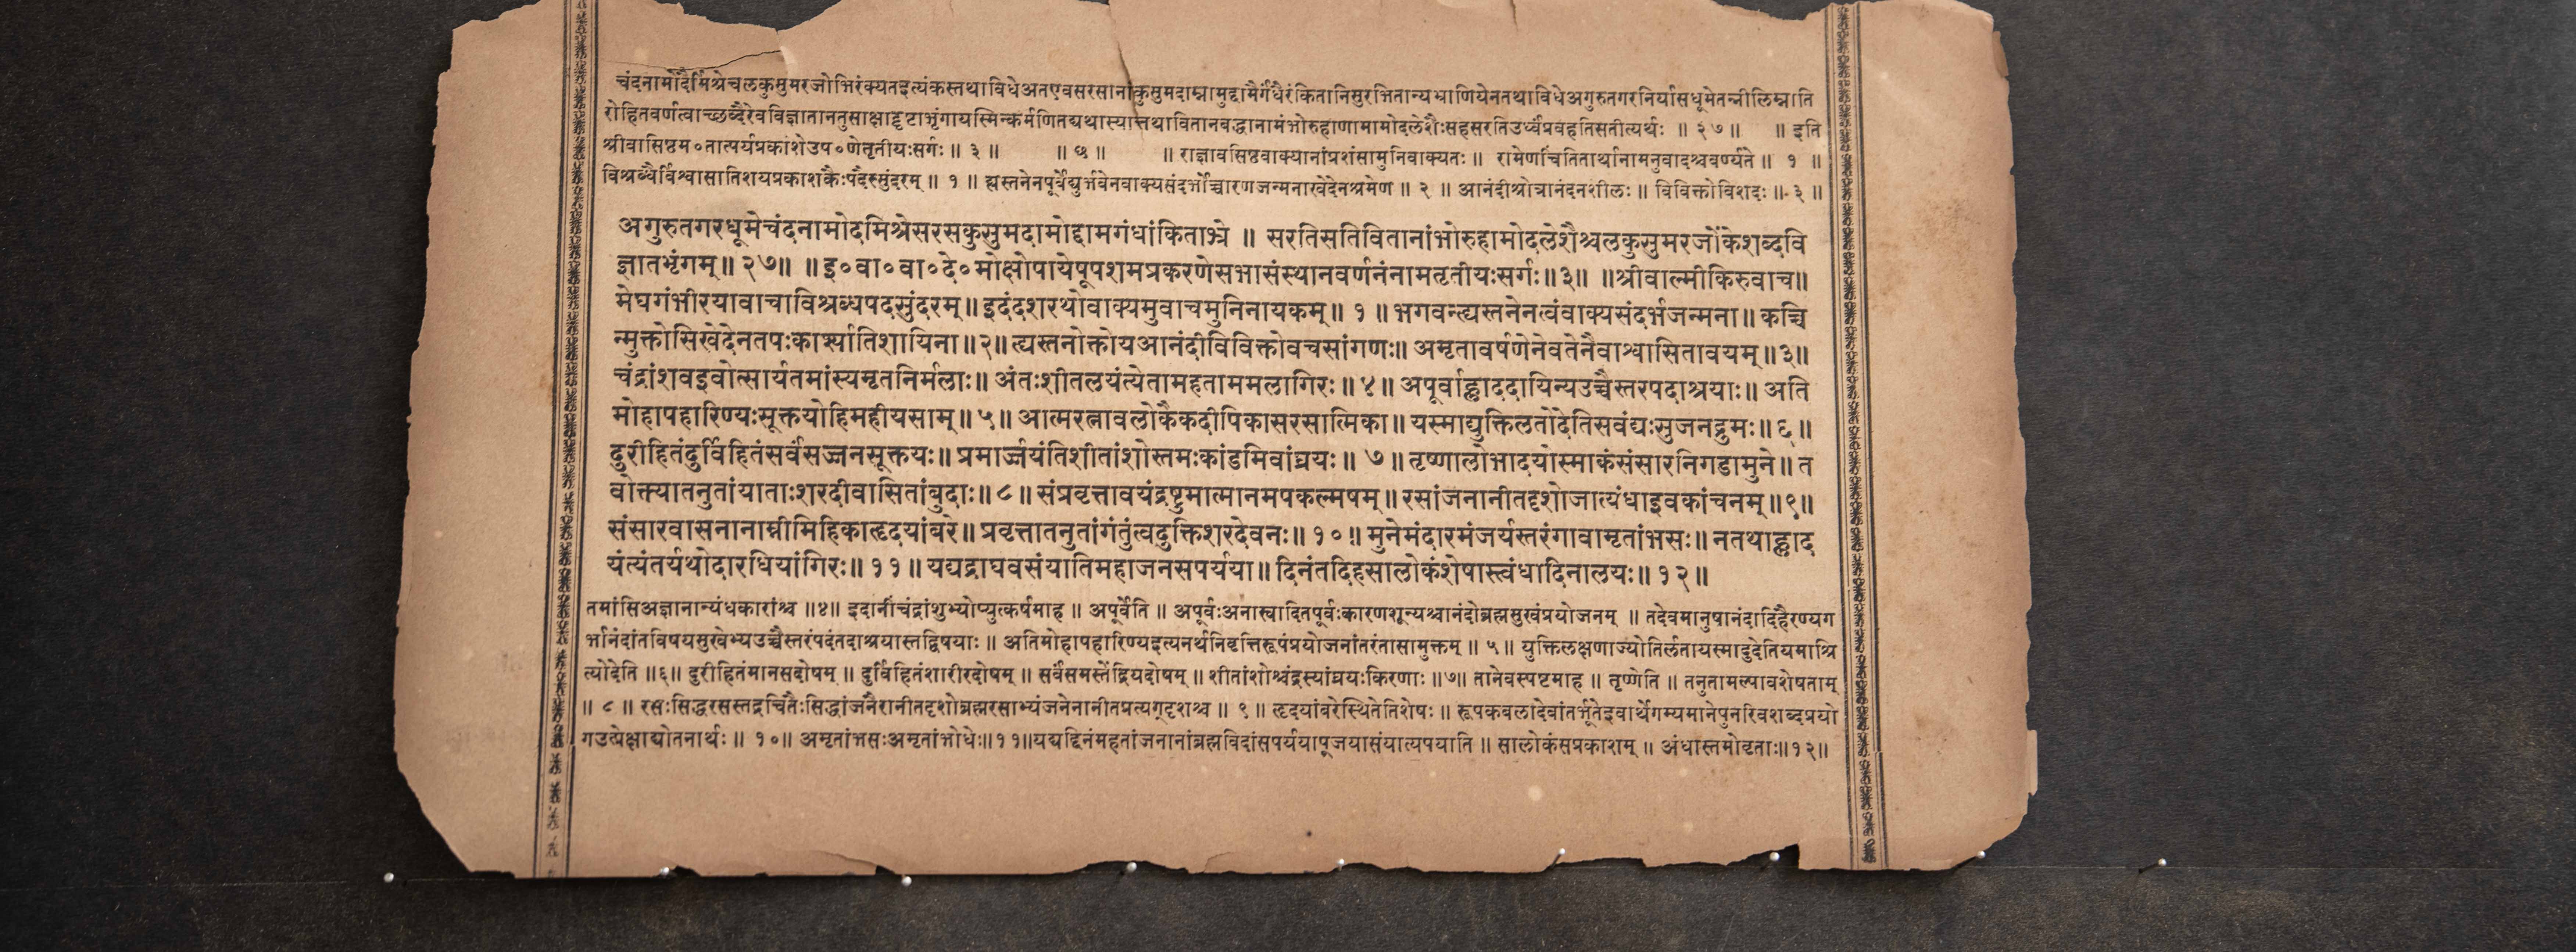 चंदनामोदैर्मिश्रेचलकुसुमरजोभिरंक्यतइत्यंकस्तथाविधेअतएवसरसानांकुसुमदाम्नामुद्दामैर्गंधैरंकितानिसुरभितान्यभ्राणियेनतथाविधेअगुरुतगरनिर्यासधूमेतन्नीलिम्नाति
रोहितवर्णत्वाच्छब्दैरेवविज्ञाताननुसाक्षाद्दृष्टाभृंगायस्मिन्कर्मणितद्यथास्यात्तथावितानबद्धानामंभोरुहाणामामोदलेशैःसहसरतिउर्ध्वंप्रवहतिसतीत्यर्थः ॥ २७ ॥ ॥ इति
श्रीवासिष्ठम॰तात्पर्यप्रकाशेउप॰णेतृतीयःसर्गः ॥ ३ ॥ ॥ छ ॥ ॥ राज्ञावसिष्ठवाक्यानांप्रशंसामुनिवाक्यतः ॥ रामेणचिंतितार्थानामनुवादश्चवर्ण्यते ॥ १ ॥
विश्रब्धैर्विश्वासातिशयप्रकाशकैःपदैस्सुंदरम् ॥ १ ॥ ह्यस्तनेनपूर्वेद्युर्भवेनवाक्यसंदर्भोच्चारणजन्मनाखेदेनश्रमेण ॥ २ ॥ आनंदीश्रोत्रानंदनशीलः ॥ विविक्तोविशदः ॥ ३ ॥
अगुरुतगरधूमेचंदनामोदमिश्रेसरसकुसुमदामोद्दामगंधांकिताभ्रे ॥ सरतिसतिवितानांभोरुहामोदलेशैश्चलकुसुमरजोंकेशब्दवि
ज्ञातभृंगम्॥ २७॥ ॥ इ॰वा॰वा॰दे॰मोक्षोपायेषूपशमप्रकरणेसभासंस्थानवर्णनंनामतृतीयःसर्गः॥३॥ ॥श्रीवाल्मीकिरुवाच॥
मेघगंभीरयावाचाविश्रब्धपदसुंदरम्॥ इदंदशरथोवाक्यमुवाचमुनिनायकम्॥ १ ॥ भगवन्ह्यस्तनेनत्वंवाक्यसंदर्भजन्मना॥ कच्चि
न्मुक्तोसिखेदेनतपःकार्श्यातिशायिना॥२॥ ह्यस्तनोक्तोयआनंदीविविक्तोवचसांगणः॥ अमृतावर्षणेनेवतेनैवाश्वासितावयम्॥३॥
चंद्रांशवइवोत्सार्यतमांस्यमृतनिर्मलाः॥ अंतःशीतलयंत्येतामहताममलागिरः॥ ४॥ अपूर्वाह्लाददायिन्यउच्चैस्तरपदाश्रयाः॥ अति
मोहापहारिण्यःसूक्तयोहिमहीयसाम्॥ ५॥ आत्मरत्नावलोकैकदीपिकासरसात्मिका॥ यस्माद्युक्तिलतोदेतिसवंद्यःसुजनद्रुमः॥ ६॥
दुरीहितंदुर्विहितंसर्वंसज्जनसूक्तयः॥ प्रमार्ज्जयंतिशीतांशोस्तमःकांडमिवांघ्रयः॥ ७॥ तृष्णालोभादयोस्माकंसंसारनिगडामुने॥ त
वोक्त्यातनुतांयाताःशरदीवासितांबुदाः॥ ८॥ संप्रवृत्तावयंद्रष्टुमात्मानमपकल्मषम्॥ रसांजनानीतदृशोजात्यंधाइवकांचनम्॥९॥
संसारवासनानाम्नीमिहिकाहृदयांबरे॥ प्रवृत्तातनुतांगंतुंत्वदुक्तिशरदेवनः॥ १०॥ मुनेमंदारमंजर्यस्तरंगावामृतांभसः॥ नतथाह्लाद
यंत्यंतर्यथोदारधियांगिरः॥ ११॥ यद्यद्राघवसंयातिमहाजनसपर्यया॥ दिनंतदिहसालोकंशेषास्त्वंधादिनालयः॥ १२॥
तमांसिअज्ञानान्यंधकारांश्च ॥४॥ इदानींचंद्रांशुभ्योप्युत्कर्षमाह ॥ अपूर्वेति ॥ अपूर्वःअनास्वादितपूर्वःकारणशून्यश्चानंदोब्रह्मसुखंप्रयोजनम् ॥ तदेवमानुषानंदादिहैरण्यग
र्भानंदांतविषयसुखेभ्यउच्चैस्तरंपदंतदाश्रयास्तद्विषयाः ॥ अतिमोहापहारिण्यइत्यनर्थनिवृत्तिरूपंप्रयोजनांतरंतासामुक्तम् ॥ ५॥ युक्तिलक्षणाज्योतिर्लतायस्मादुदेतियमाश्रि
त्योदेति ॥६॥ दुरीहितंमानसदोषम् ॥ दुर्विहितंशारीरदोषम् ॥ सर्वंसमस्तेंद्रियदोषम् ॥ शीतांशोश्चंद्रस्यांघ्रयःकिरणाः ॥७॥ तानेवस्पष्टमाह ॥ तृष्णेति ॥ तनुतामल्पावशेषताम्
॥ ८ ॥ रसःसिद्धरसस्तद्रचितैःसिद्धांजनैरानीतदृशोब्रह्मरसाभ्यंजनेनानीतप्रत्यग्दृशश्च ॥ ९ ॥ हृदयांबरेस्थितेतिशेषः ॥ रूपकबलादेवांतर्भूतेइवार्थेगम्यमानेपुनरिवशब्दप्रयो
गउत्प्रेक्षाद्योतनार्थः ॥ १०॥ अमृतांभसःअमृतांभोधेः॥११॥यद्यद्दिनंमहतांजनानांब्रह्मविदांसपर्ययापूजयासंयात्यपयाति ॥ सालोकंसप्रकाशम् ॥ अंधास्तमोवृताः॥१२॥